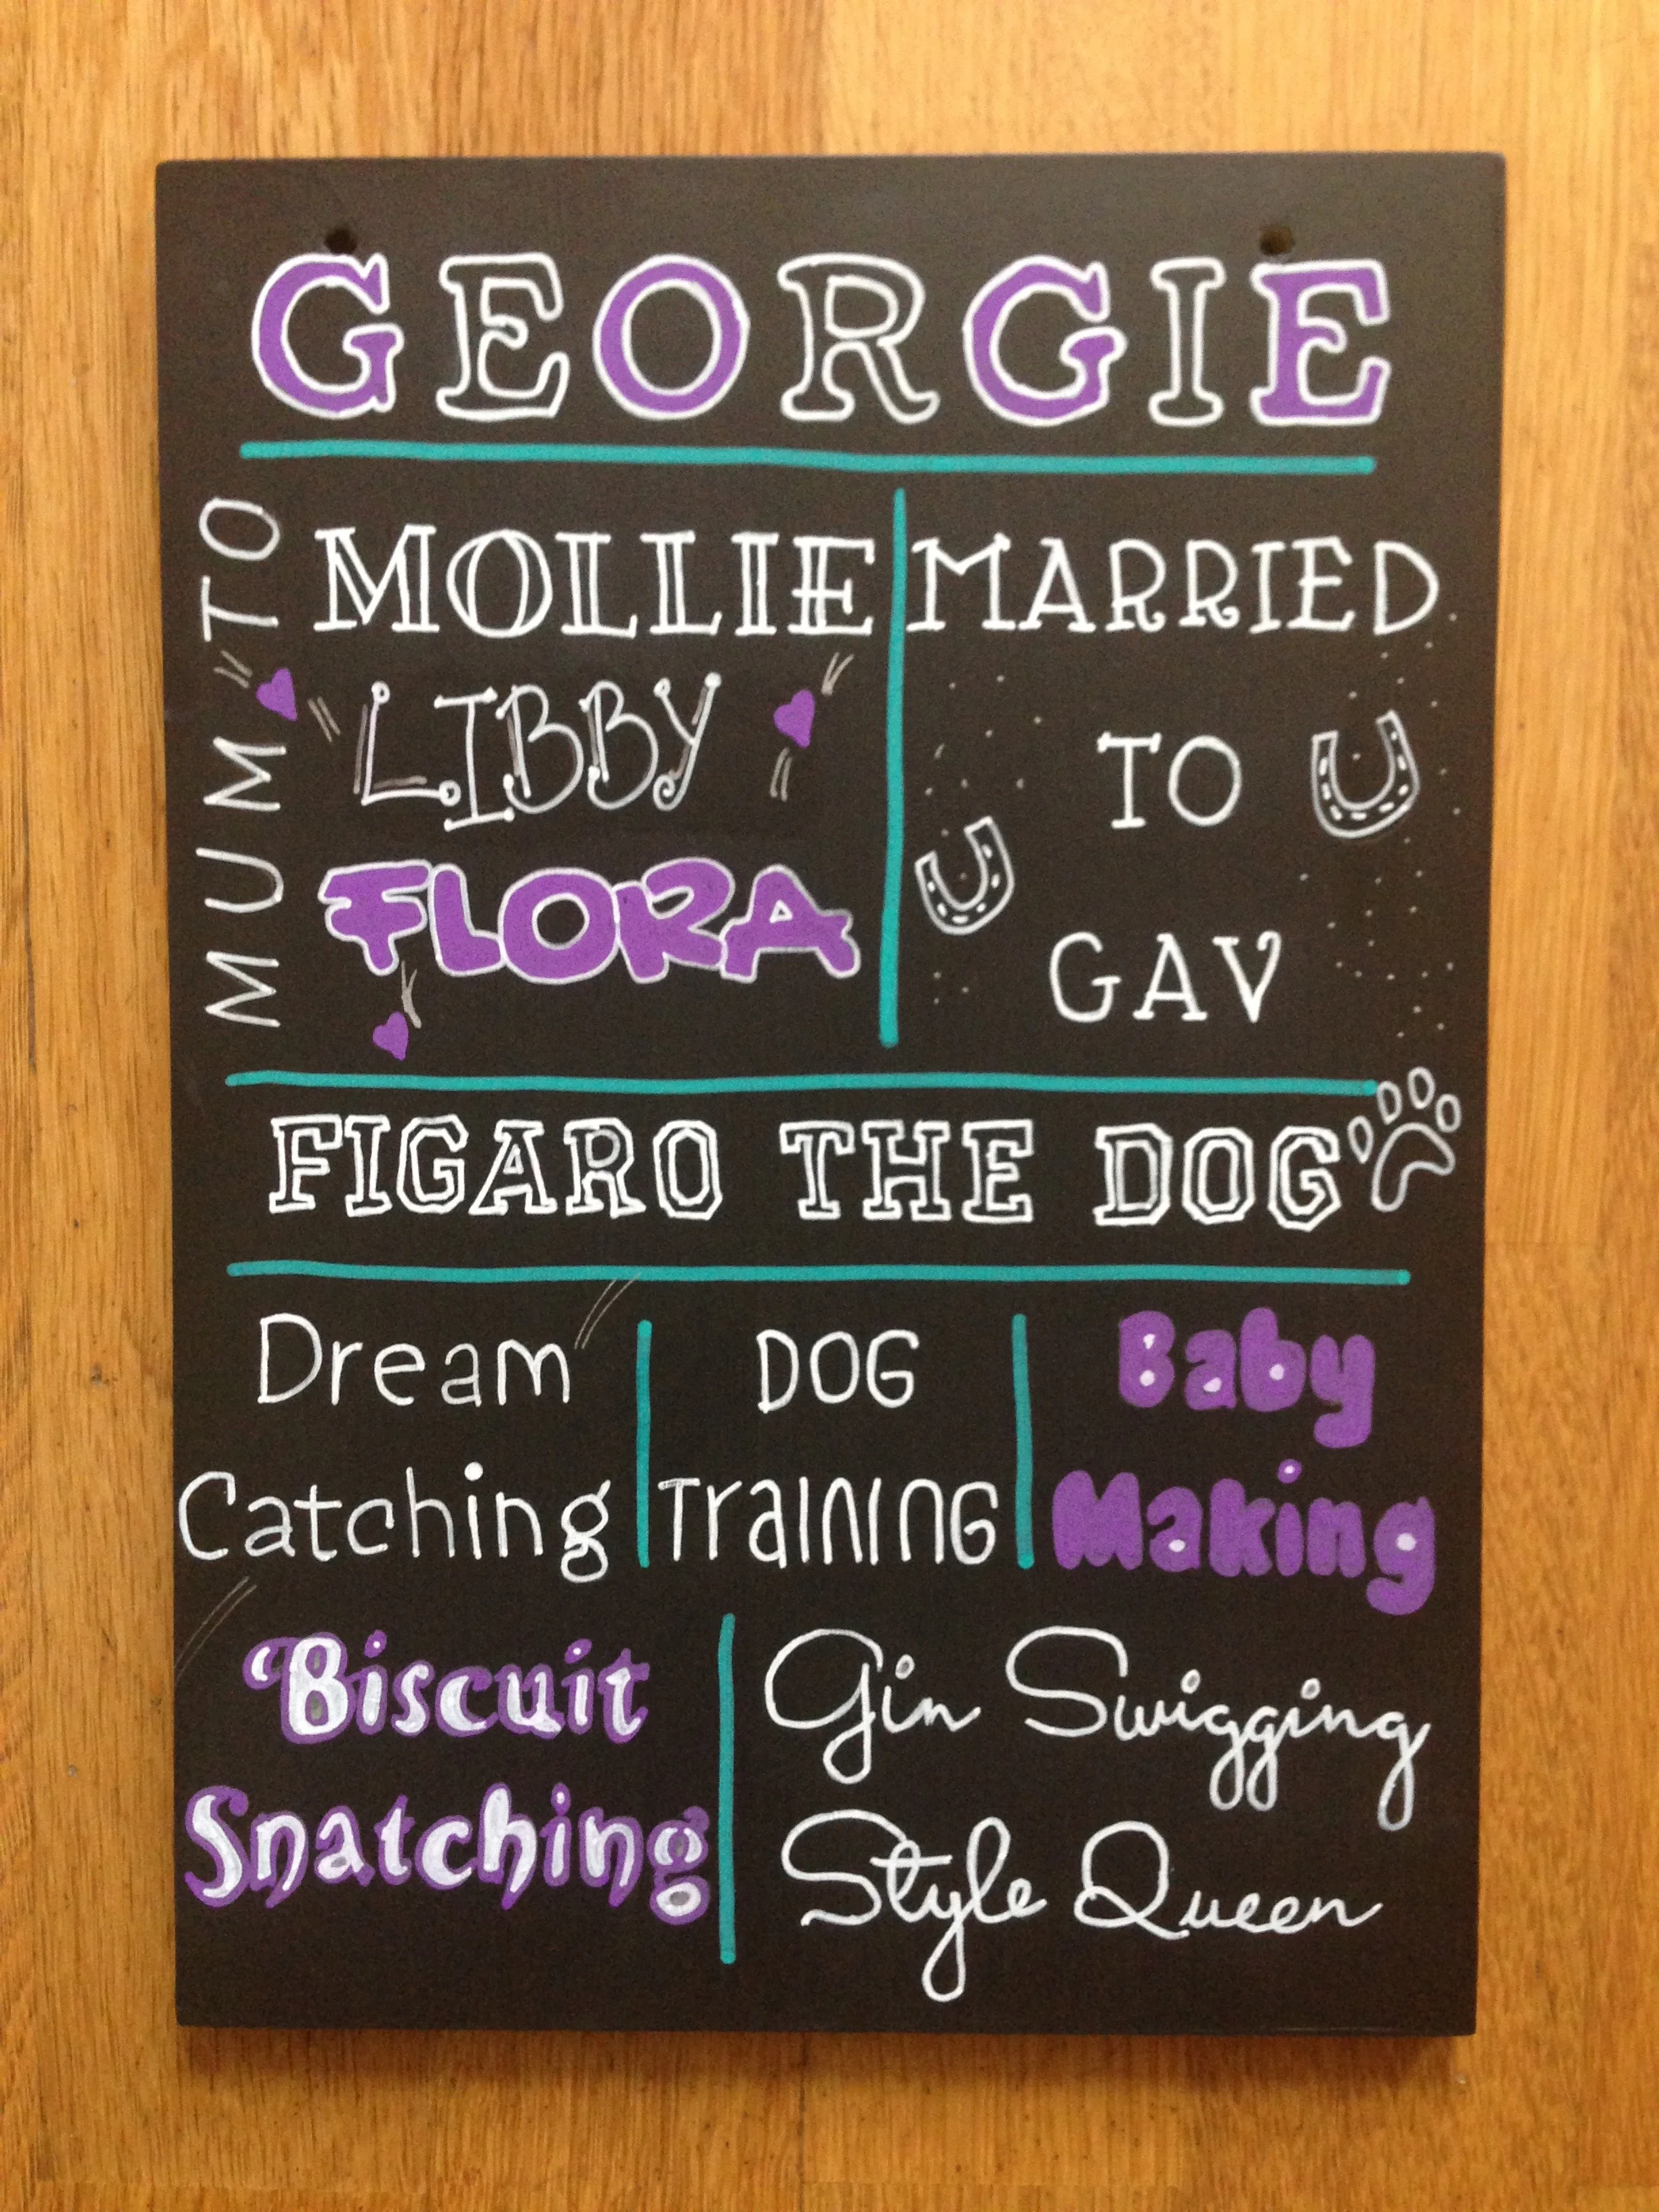 GEORGIE
MUM TO
MOLLIE
LIBBY
FLORA
MARRIED
TO
GAV
FIGARO THE DOG
Dream
Catching
DOG
TraINING
Baby
Making
Biscuit
Snatching
Gin Swigging
Style Queen